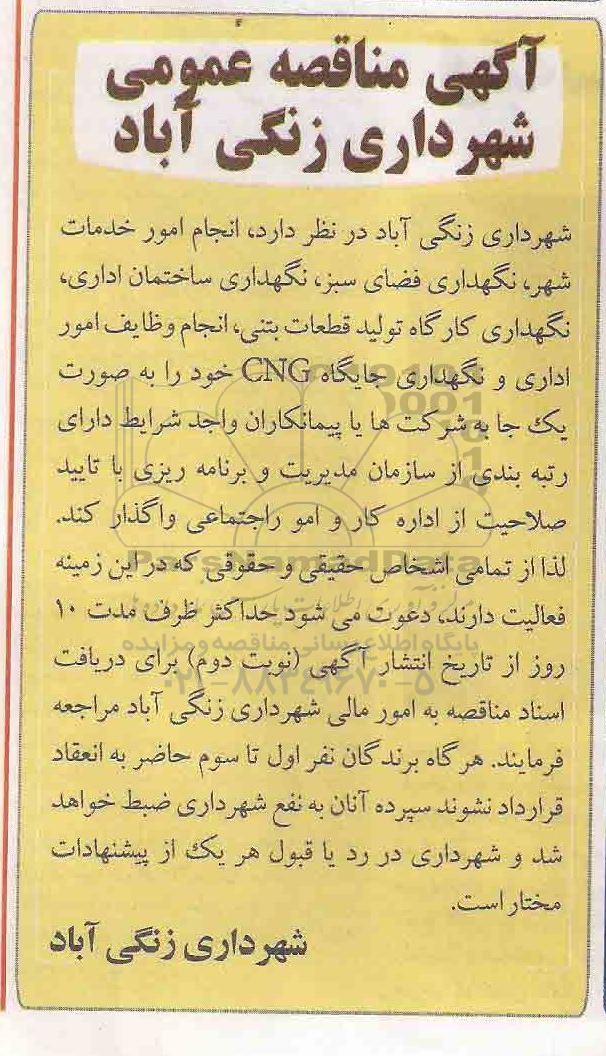 آگهی مناقصه عمومی
شهرداری زنگی آباد
شهرداری زنگی آباد در نظر دارد، انجام امور خدمات
شهر، نگهداری فضای سبز، نگهداری ساختمان اداری،
نگهداری کارگاه تولید قطعات بتنی، انجام وظایف امور
اداری و نگهداری جایگاه CNG خود را به صورت
یک جا به شرکت ها یا پیمانکاران واجد شرایط دارای
رتبه بندی از سازمان مدیریت و برنامه ریزی با تایید
صلاحیت از اداره کار و امو راجتماعی واگذار کند.
ParsNamadData
لذا از تمامی اشخاص حقیقی و حقوقی که در این زمینه
فعالیت دارند، دعوت می شود حداکثر ظرف مدت ۱۰
پایگاه اطلاع رسانی مناقصه و مزایده
روز از تاریخ انتشار آگهی (نوبت دوم) برای دریافت
۰۲۱-۸۸۳۴۹۶۷۰-۵
اسناد مناقصه به امور مالی شهرداری زنگی آباد مراجعه
فرمایند. هرگاه برندگان نفر اول تا سوم حاضر به انعقاد
قرارداد نشوند سپرده آنان به نفع شهرداری ضبط خواهد
شد و شهرداری در رد یا قبول هر یک از پیشنهادات
مختار است.
شهرداری زنگی آباد